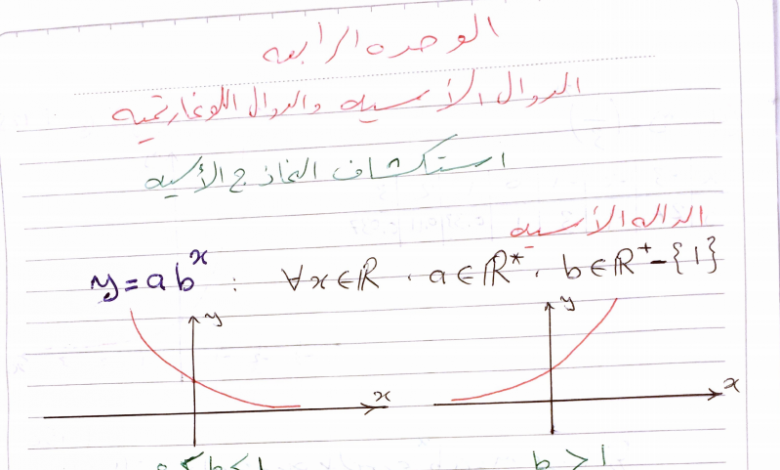 الوحده الرابعه
الدوال الأسيه والدوال اللوغارتميه
استكشاف النماذج الأسيه
الداله الأسيه
y=ab^x : ∀x∈ℝ , a∈ℝ*⁻ , b∈ℝ⁺-{1}
y y
x x
0<b<1 b>1